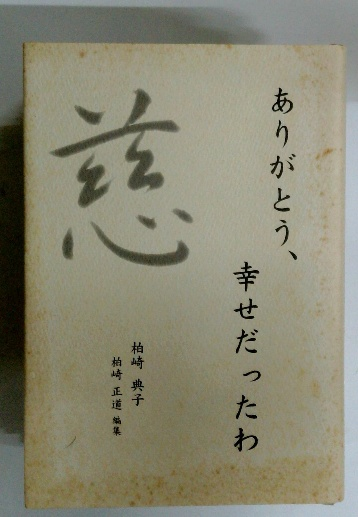 ありがとう、
幸せだったわ
慈
柏崎 典子
柏崎 正道 編集